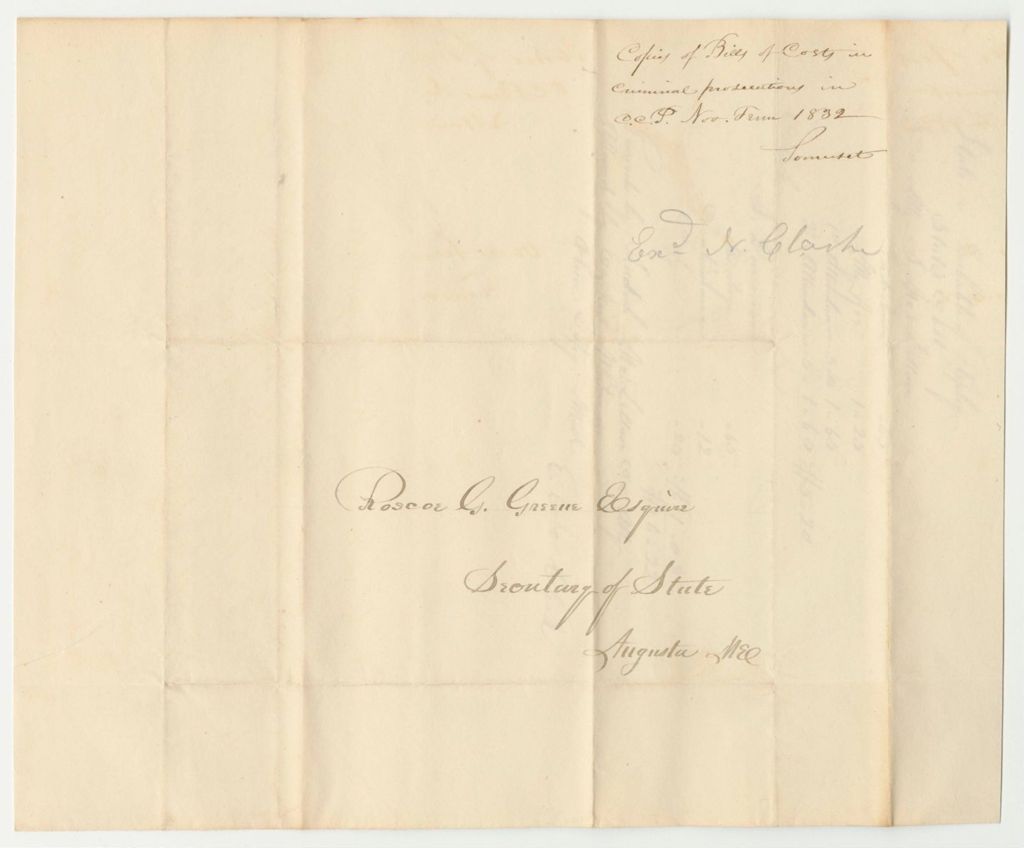 Copies of Bills of Costs in
Criminal prosecutions in
C.C.P. Nov. Term 1832
Somerset
Exd. N. Clarke
Roscoe G. Greene Esquire
Secretary of State
Augusta Me